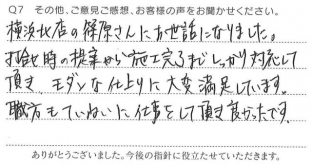 Q7 その他、ご意見ご感想、お客様の声をお聞かせください。
横浜北店の篠原さんにお世話になりました。
打合せ時の提案から施工完了までしっかり対応して
頂き、モダンな仕上りに大変満足しています。
職方もていねいに仕事をして頂き良かったです。
ありがとうございました。今後の指針に役立たせていただきます。